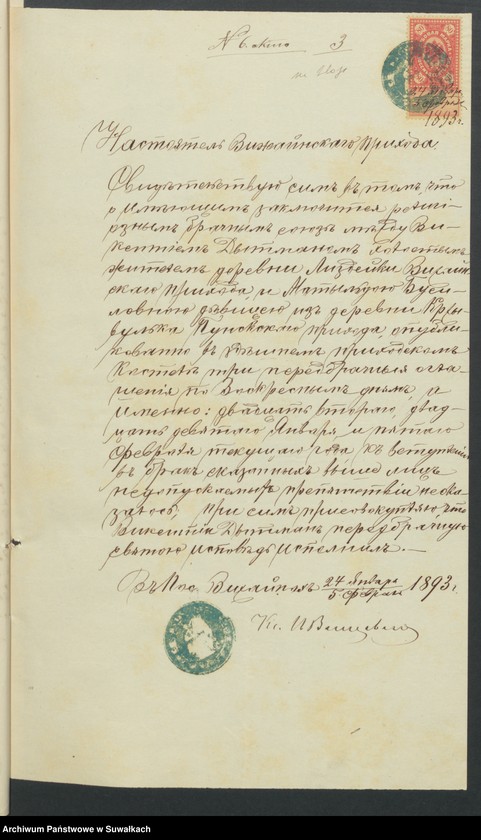 N 6 акта 3
24 Январ
5 Феврал
1893 г.
Настоятель Вижайнскаго прихода
Свидетельствую симъ въ томъ, что
о имѣющимъ заключится религі-
ознымъ брачнымъ союзѣ между Ви-
кентіемъ Дытманомъ холостымъ
жителемъ деревни Лиздейки Вижайн
скаго прихода и Матыльдою Буси-
ловною дѣвицею изъ деревни Кры-
вулька Пунскаго прихода опубли-
кованно въ здѣшнемъ приходскомъ
Костелѣ три передбрачныя огла-
шенія по Воскреснымъ днямъ, а
именно: двадцать втораго, двад-
цать девятаго Января и пятаго
Февраля текущаго года къ вступленію
въ бракъ сказанныхъ выше лицъ
недопускаемыхъ препятствій неока-
залось, при семъ присовокупляю, что
Викентій Дытманъ передбрачную
святою исповѣдь исполнилъ. —
Въ пос. Вижайнахъ 24 Января
5 Феврал 1893 г.
Кс.
Archiwum Państwowe w Suwałkach